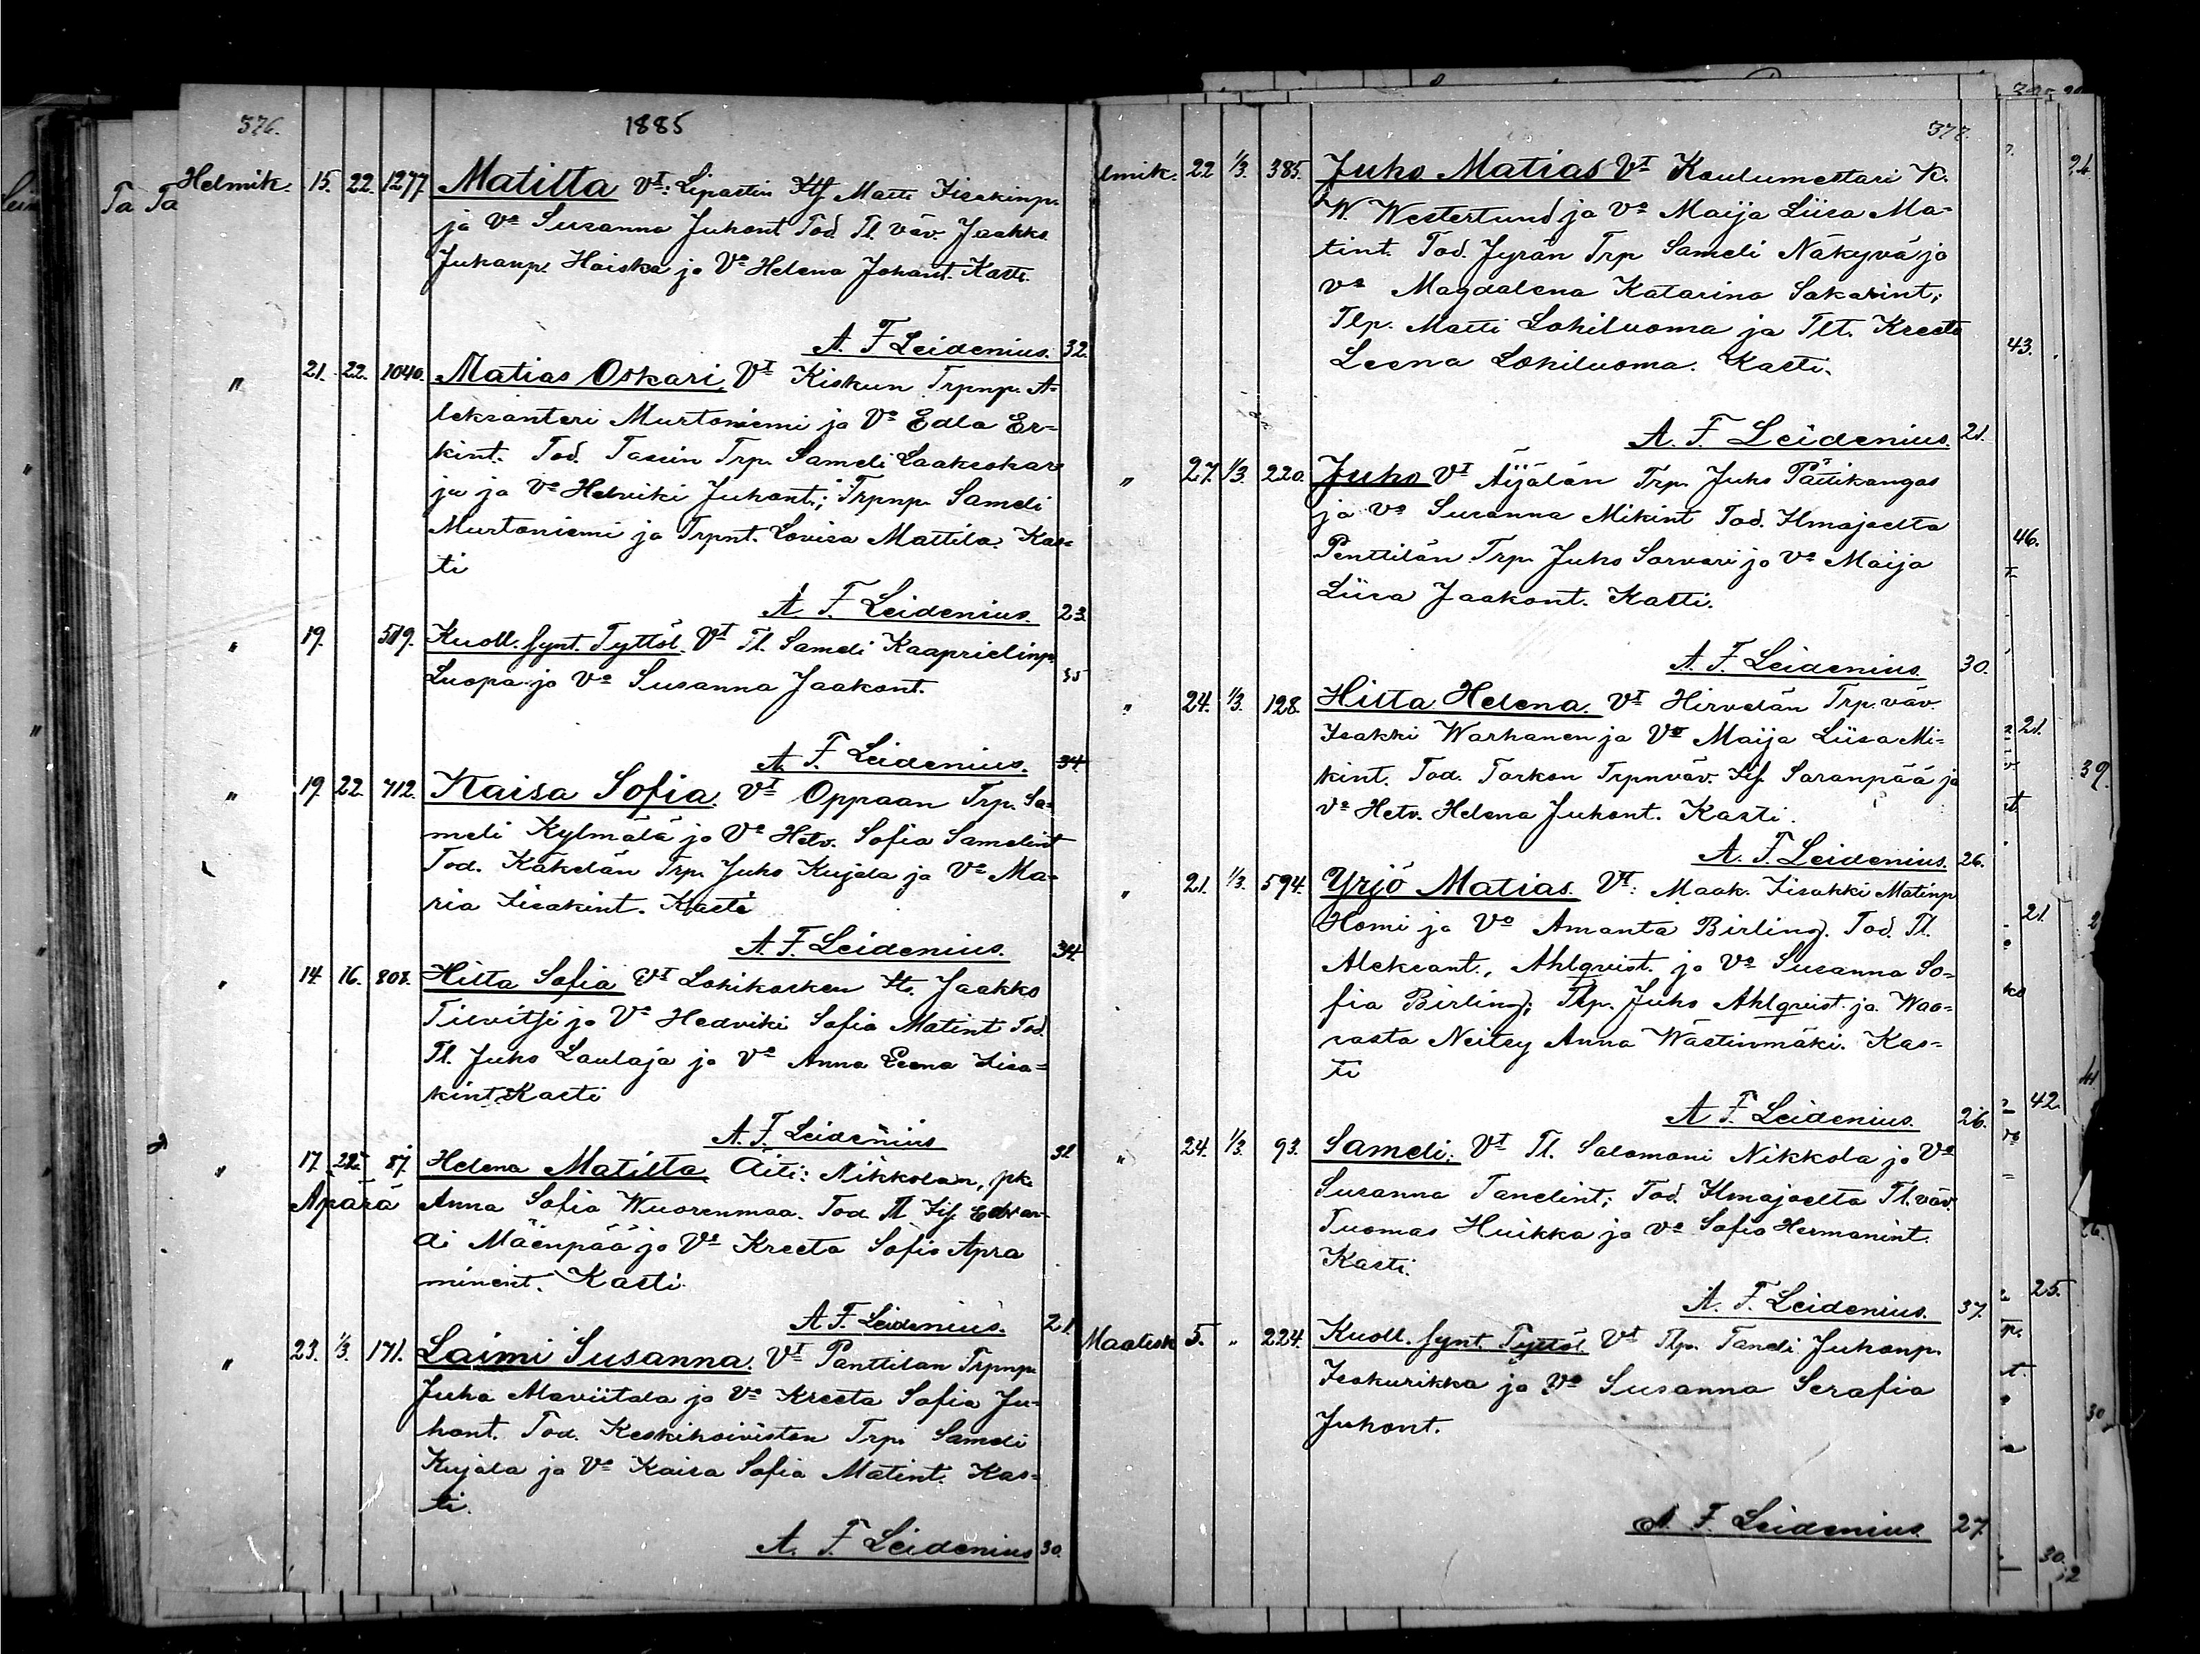 376.
1885
Helmik. 15. 22. 1277. Matilta VI: Lipastin Itf Matti Iisakinp.
ja Va Susanna Juhont Tod. Tl. väv. Jaakko
Juhanp. Hoiska ja Va Helena Johant. Kasti.
A. F. Leidenius. 32.
" 21. 22. 1040. Matias Oskari, VI Kiskun Trpnp. A-
leksanteri Murtoniemi ja Va Edla Er-
kint. Tod. Tassin Trp. Sameli Laaksohar
ju ja Va Hedviki Juhont.; Trpnp. Sameli
Murtoniemi ja Trpnt. Lovisa Mattila. Kas-
ti
A. F. Leidenius. 23.
" 19. 519. Kuoll. synt. Tyttöl. VI Tl. Sameli Kaaprielinp.
Luopa ja Va Susanna Jaakont. 35
A. F. Leidenius. 34.
" 19. 22. 712. Kaisa Sofia. VI Oppaan Trp. Sa-
meli Kylmälä ja Va Hetv. Sofia Samelint
Tod. Käkelän Trp. Juho Kujala ja Va Ma-
ria Iisakint. Kasti
A. F. Leidenius. 34.
" 14. 16. 808. Hilta Sofia VI Lohikosken Itf. Jaakko
Tievitsi ja Va Hedviki Sofia Matint Tod.
Tl. Juho Laulaja ja Va Anna Leena Iisa-
kint. Kasti
A. F. Leidenius 32
" 17. 22. 87. Helena Matilta. Äiti: Nikkolan, pk.
Äpärä Anna Sofia Wuorenmaa. Tod. Tl Itf. Edvar-
di Mäenpää ja Va Kreeta Sofia Apra
minent. Kasti.
A. F. Leidenius. 21.
" 23. 1/3. 171. Laimi Susanna. VI Panttilan Trpnp.
Juha Maviitala ja Va Kreeta Sofia Ju-
hont. Tod. Keskihoiviston Trp. Sameli
Kujala ja Va Kaisa Sofia Matint. Kas-
ti.
A. F. Leidenius 30.
377.
lmik. 22 1/3. 385. Juho Matias VI Koulumestari K.
W. Westerlund ja Va Maija Liisa Ma-
tint. Tod. Jyrän Trp Sameli Näkyvä ja
Va Magdalena Katarina Sakarint.;
Tlp. Matti Lohiluoma ja Tlt. Kreeta
Leena Lohiluoma. Kasti.
A. F. Leidenius. 21.
" 27. 1/3. 220. Juho VI Äijälän Trp. Juho Pätikangas
ja Va Susanna Mikint Tod. Ilmajoelta
Penttilän Trp. Juho Sarvari ja Va Maija
Liisa Jaakont. Kasti.
A. F. Leidenius. 30.
" 24. 1/3. 128. Hilta Helena. VI Hirvelän Trp. väv.
Isakki Warhanen ja Va Maija Liisa Mi-
kint. Tod. Torkon Trpnväv. Itf. Saranpää ja
Va Hetv. Helena Juhont. Kasti.
A. F. Leidenius. 26.
" 21. 1/3. 594. Yrjö Matias. VI: Maak. Iisakki Matinp
Homi ja Va Amanta Birling. Tod. Tl.
Aleksant., Ahlqvist. ja Va Susanna So-
fia Birling; Tlp. Juho Ahlqvist ja Waa-
rasta Neitsy Anna Wästinmäki. Kas-
ti
A. F. Leidenius. 26.
" 24. 1/3. 93. Sameli. VI Tl. Salomoni Nikkola ja Va
Susanna Tanelint; Tod. Ilmajoelta Tl. väv.
Tuomas Huikka ja Va Sofia Hermanint.
Kasti.
A. F. Leidenius. 37.
Maalisk 5. " 224. Kuoll. synt. Tyttöl. VI Tlp. Taneli Juhanp.
Isokurikka ja Va Susanna Serafia
Juhont.
A. F. Leidenius. 27.